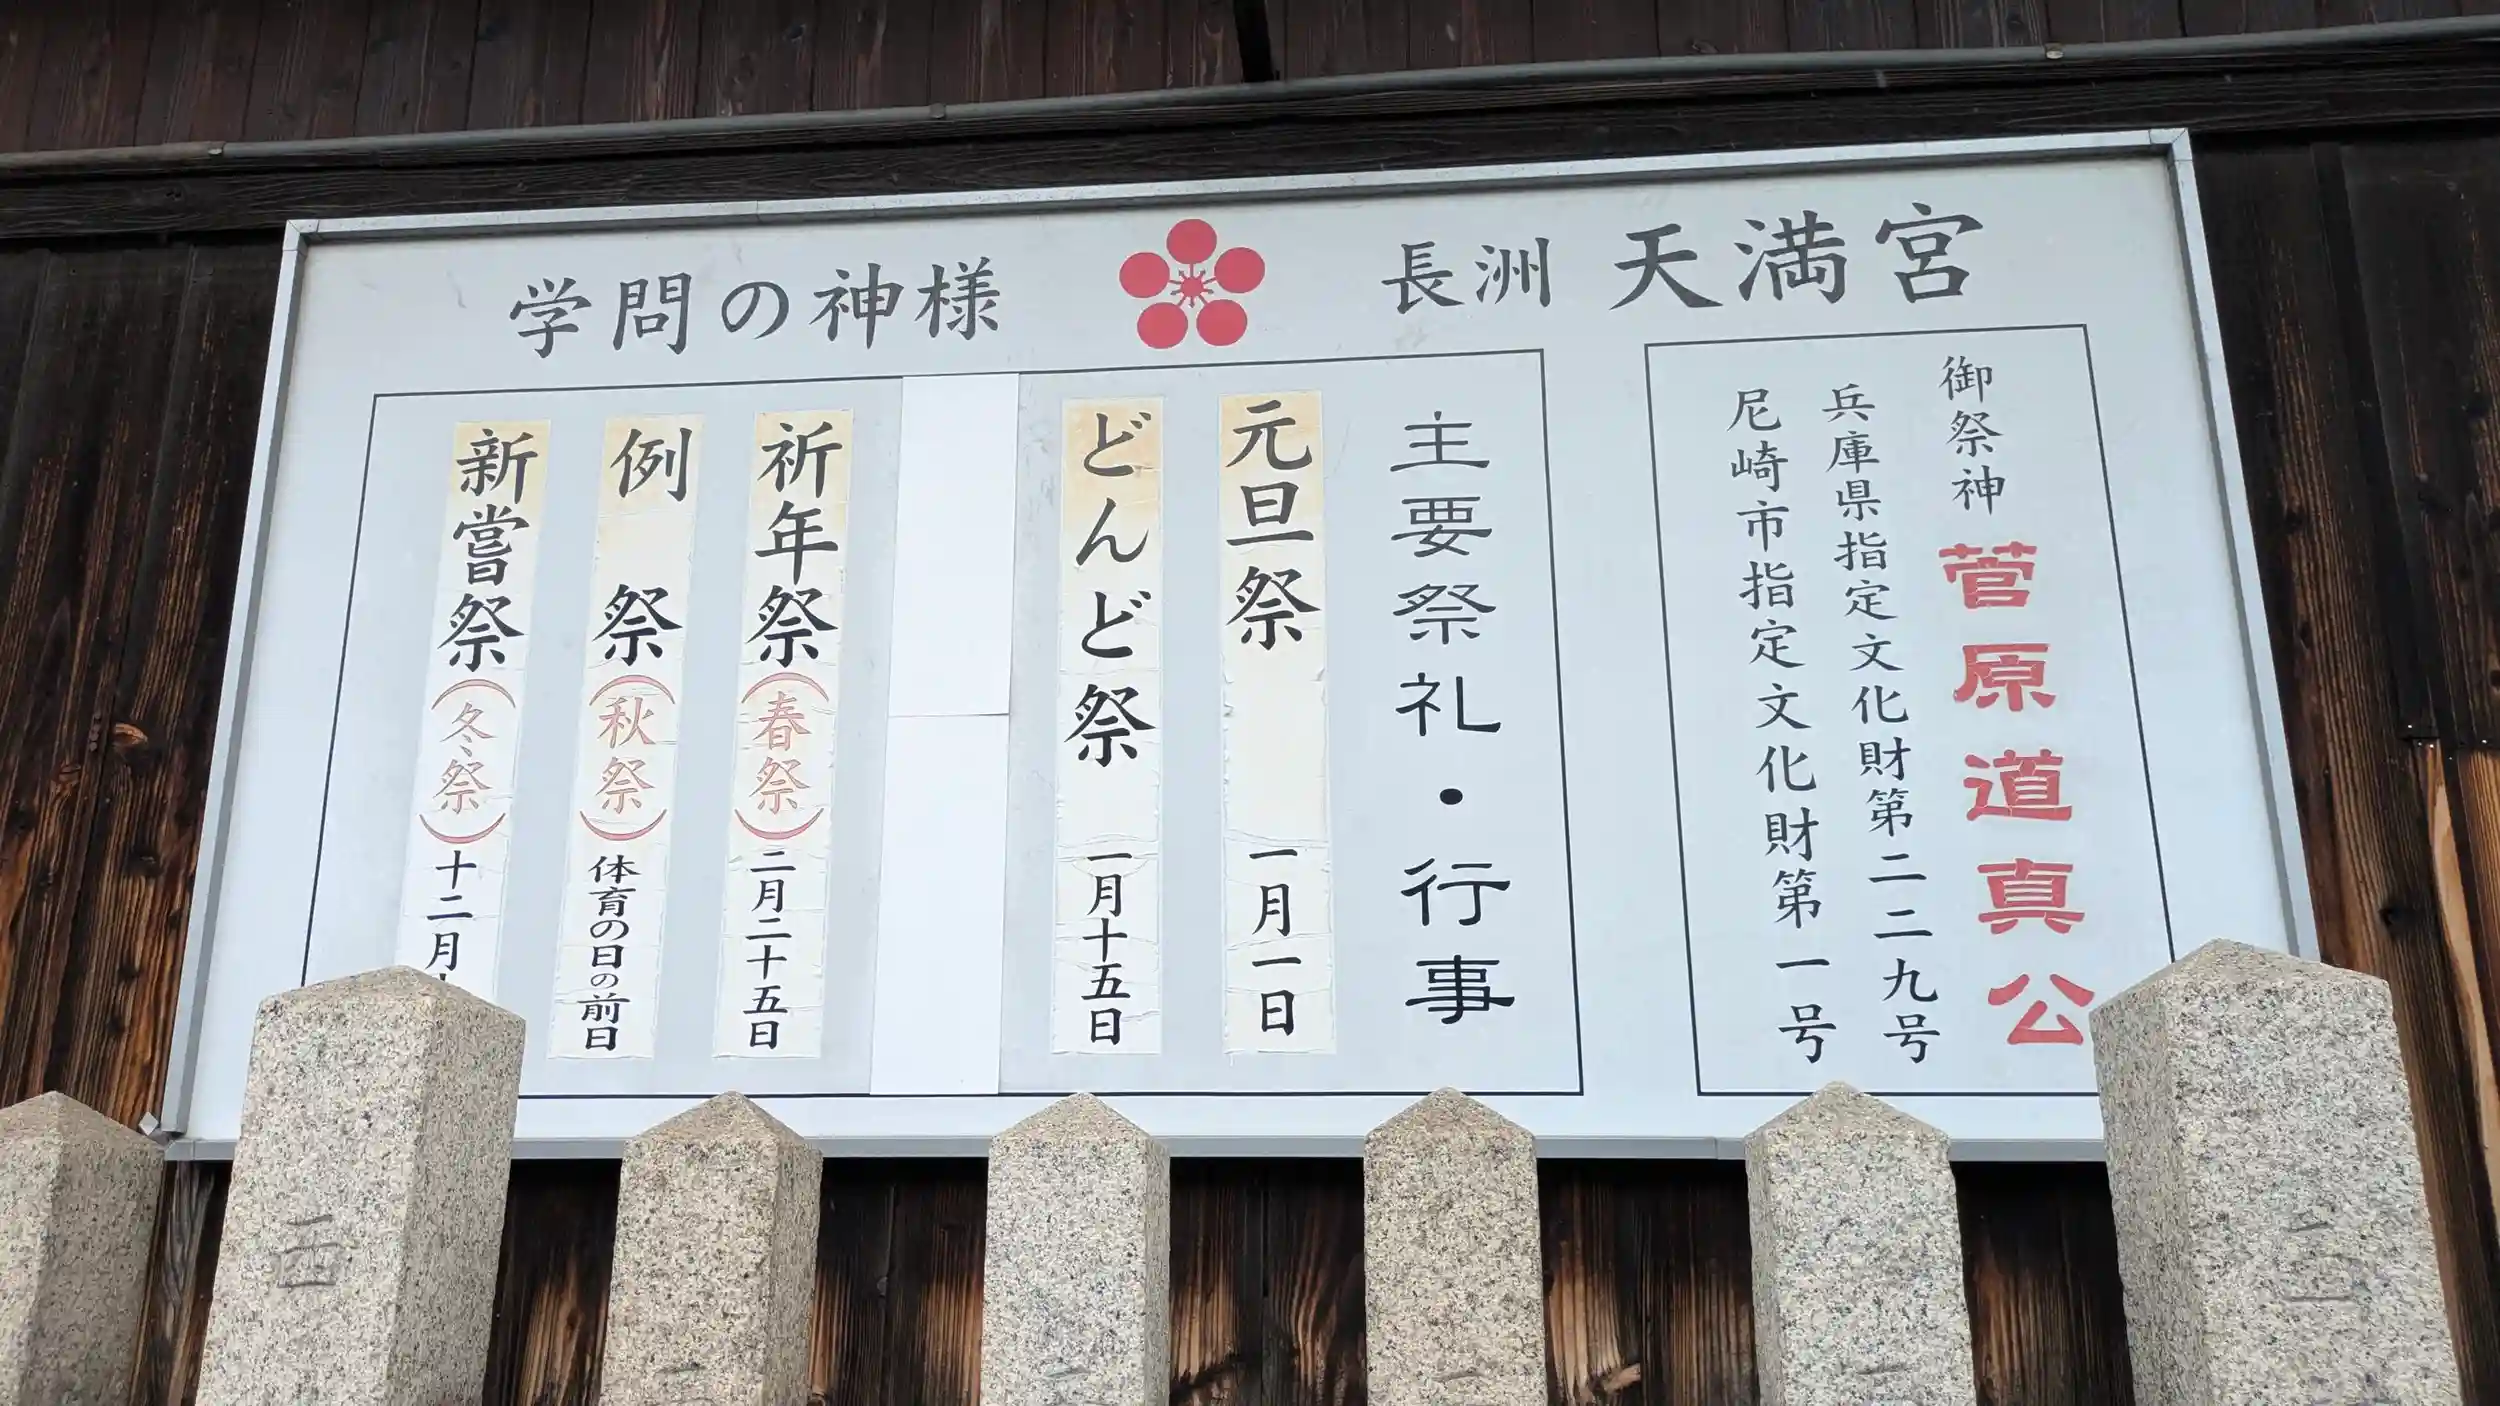 長洲 天満宮
学問の神様
御祭神 菅原道真公
兵庫県指定文化財第二二九号
尼崎市指定文化財第一号
主要祭礼・行事
元旦祭 一月一日
どんど祭 一月十五日
祈年祭(春祭)二月二十五日
例祭(秋祭)体育の日の前日
新嘗祭(冬祭)十二月